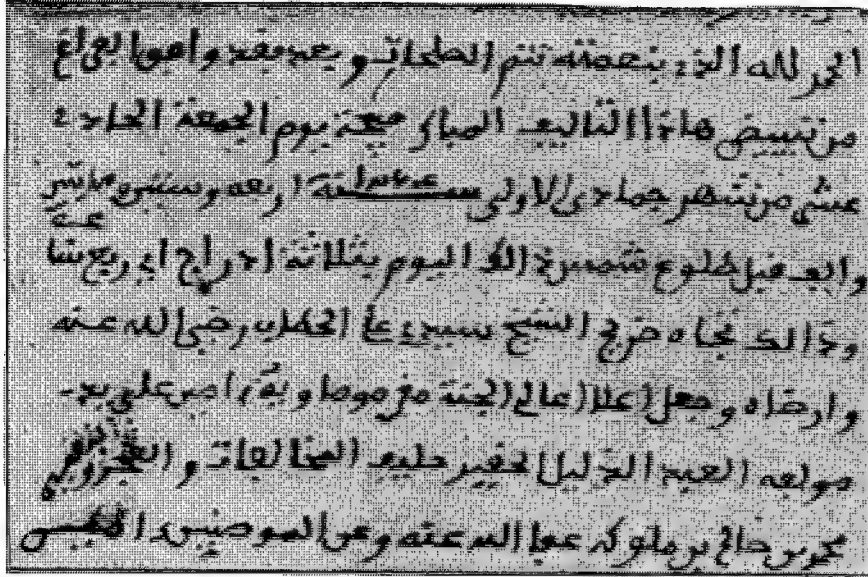 الحمد لله الذي بنعمته تتم الصالحات وبعد فقد وافق الفراغ
من تبييض هاذا التاليف المبارك صبيحة يوم الجمعة الحادي
عشر من شهر جمادى الاولى سنة اربعة وستين ومايتين
والف قبل طلوع شمس ذالك اليوم بثلاثة ادراج اي ربع ساعة
وذالك تجاه ضريح الشيخ سيدي على الحطاب رضي الله عنه
وارضاه وجعل اعلا اعالي الجنة منزله وماواه امين على يد
مولفه العبد الذليل الحقير حليف المخالفات و
محمد بن صالح بن ملوكة عفا الله عنه وعن المومنين